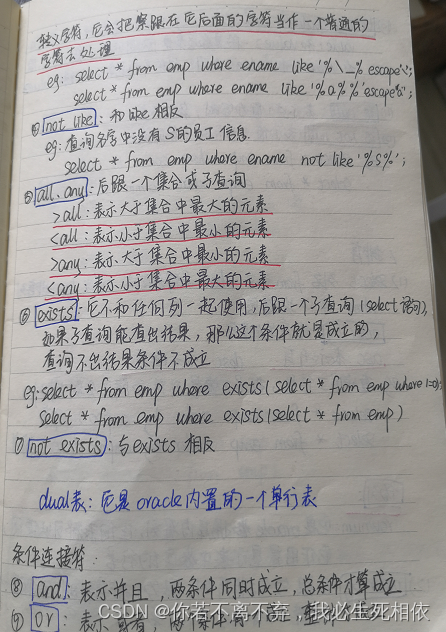 转义字符,它会把紧跟在它后面的字符当作一个普通的
字符去处理
eg: select * from emp where ename like '%\_%' escape'\';
select * from emp where ename like '%a%%' escape
④ not like: 和like相反
eg: 查询名字中没有S的员工信息.
select * from emp where ename not like '%S%';
⑤ all.any: 后跟一个集合或子查询
>all: 表示大于集合中最大的元素
<all: 表示小于集合中最小的元素
>any: 表示大于集合中最小的元素
<any: 表示小于集合中最大的元素
⑥ exists: 它不和任何列一起使用,后跟一个子查询(select 语句),
如果子查询能查出结果,那么这个条件就是成立的,
查询不出结果条件不成立
eg: select * from emp where exists(select * from emp where 1=0);
select * from emp where exists(select * from emp)
⑦ not exists: 与exists 相反
dual表: 它是oracle内置的一个单行表
条件连接符:
⑧ and: 表示并且,两条件同时成立,总条件才算成立
⑨ or: 表示或者,两个条件
CSDN @你若不离不弃,我必生死相依